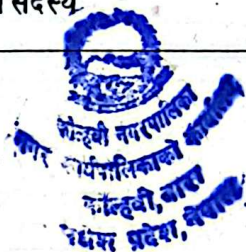 सदस्य
कोल्हवी नगरपालिका
नगर कार्यपालिकाको कार्यालय
कोल्हवी, बारा
मधेश प्रदेश, नेपाल